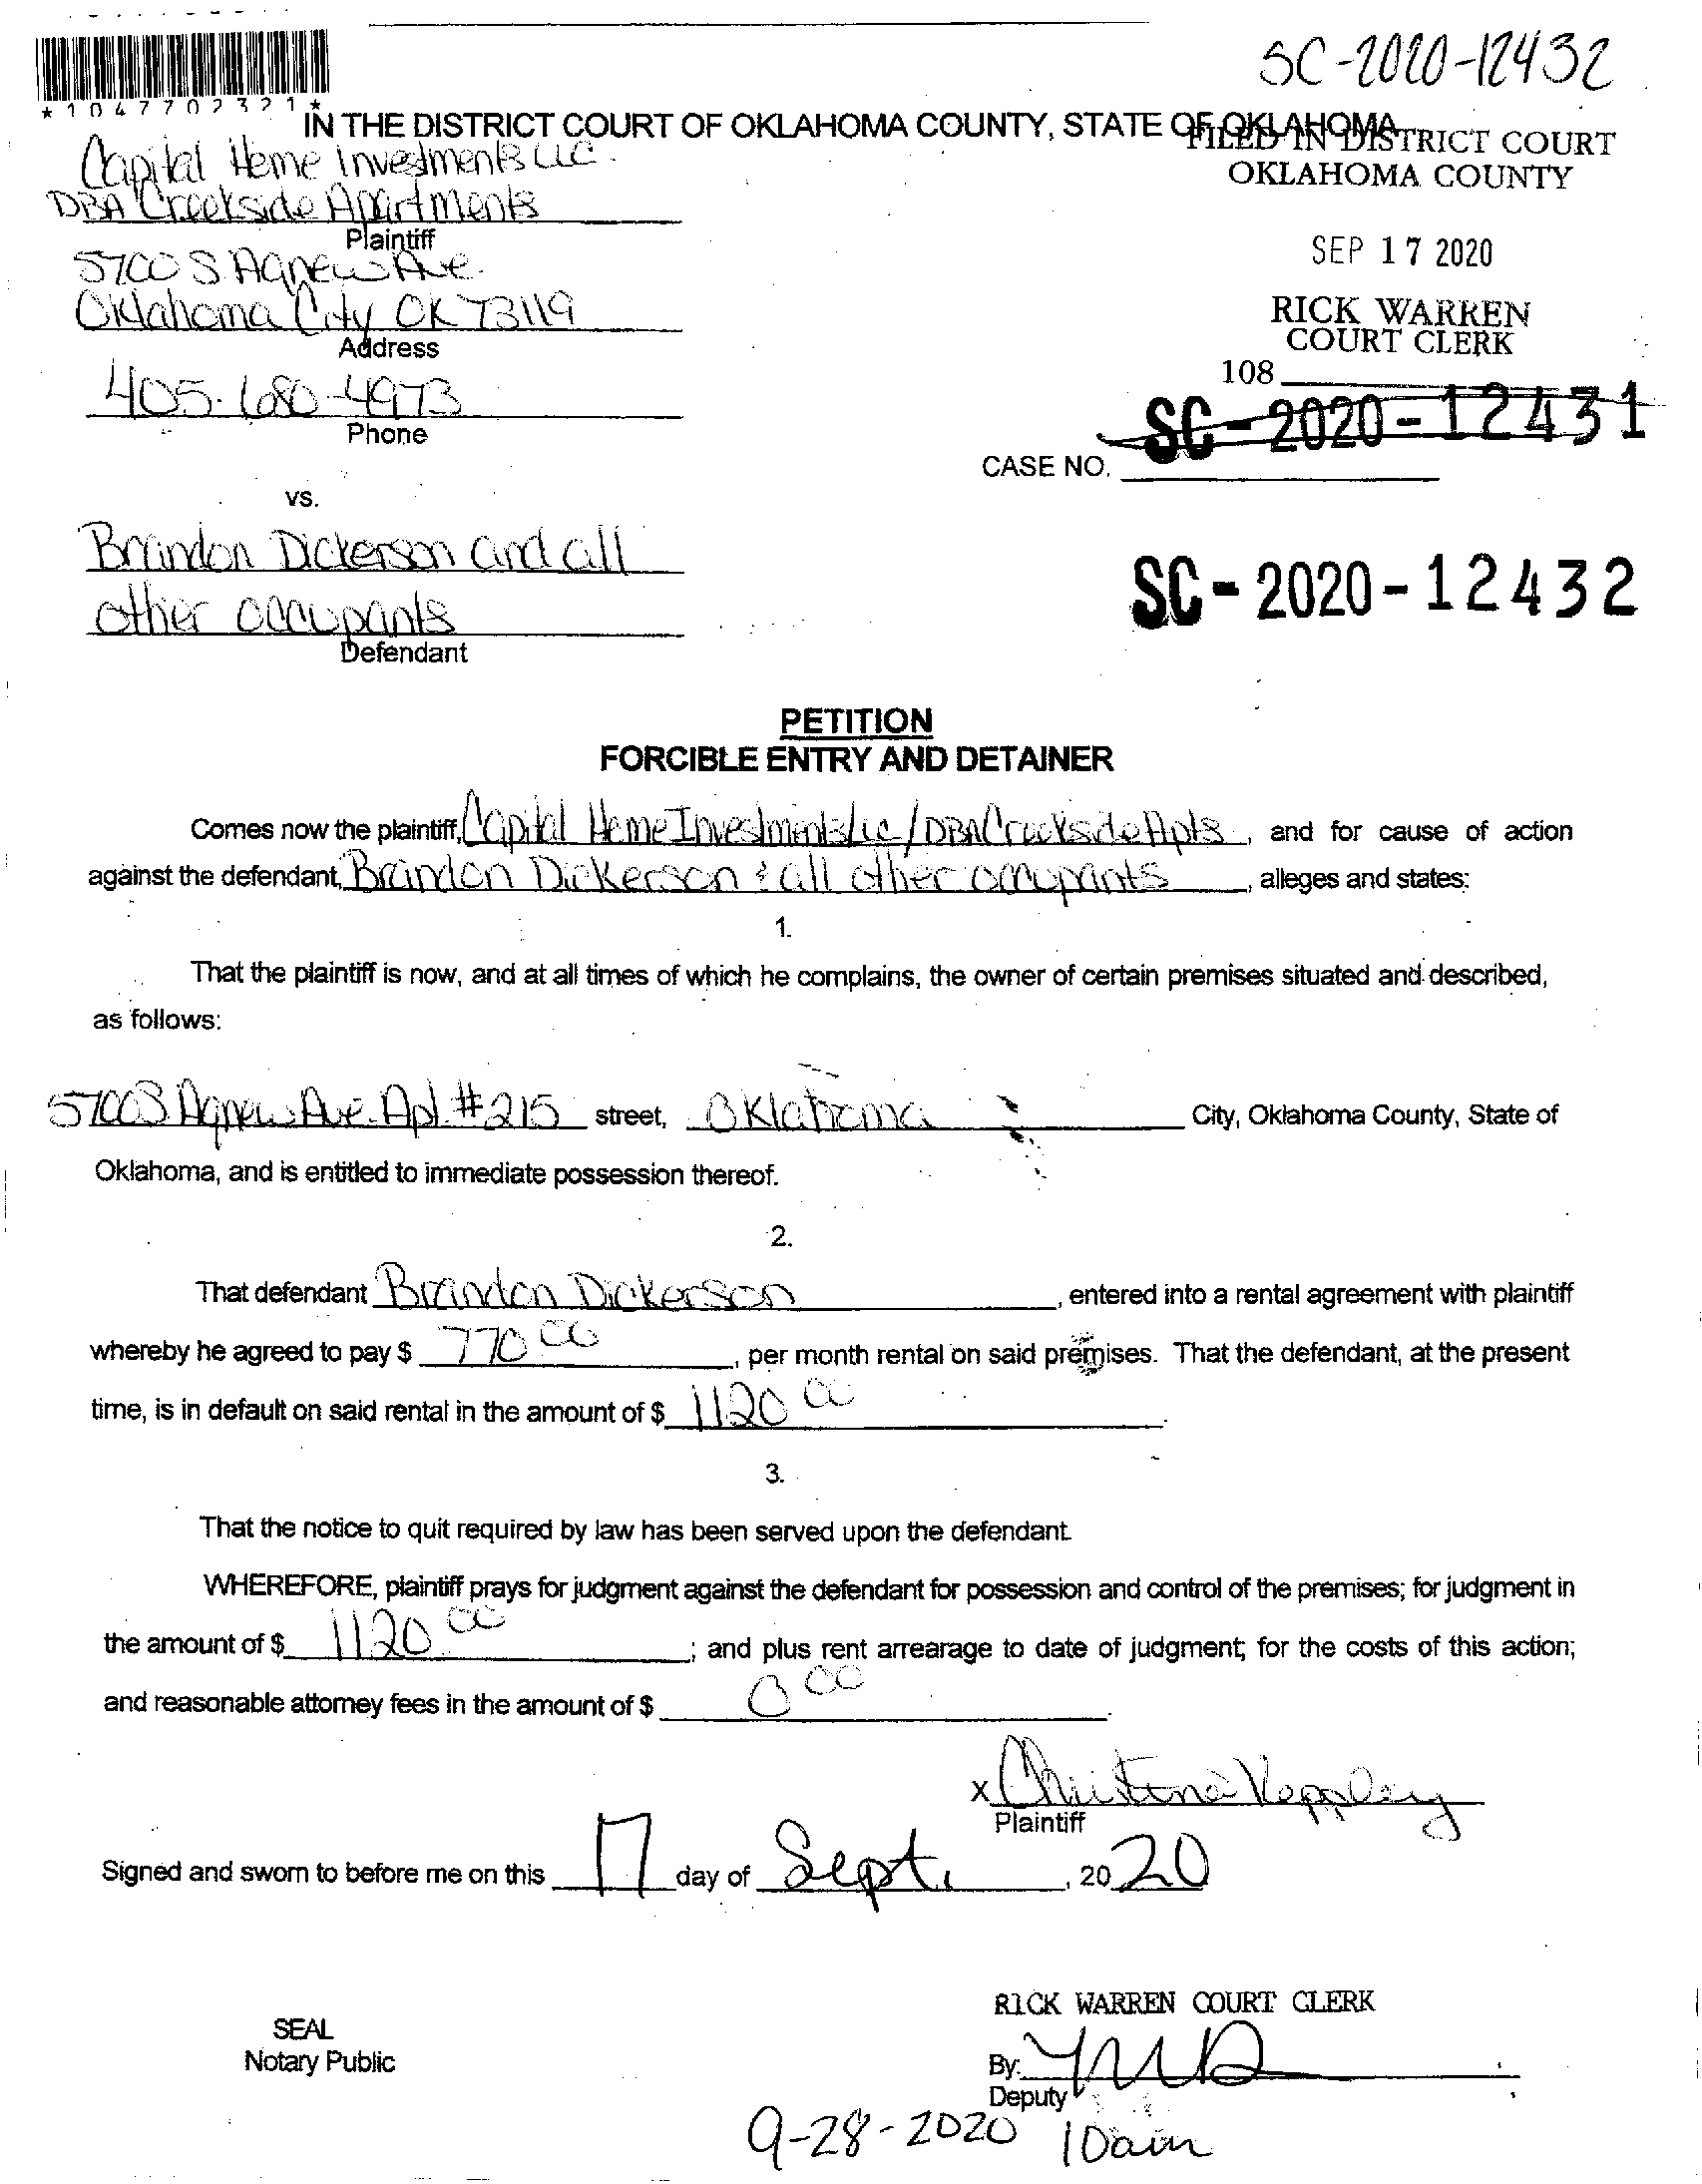 SC-2020-12432
*1047702321*
IN THE DISTRICT COURT OF OKLAHOMA COUNTY, STATE OF OKLAHOMA
FILED IN DISTRICT COURT
OKLAHOMA COUNTY
Capital Home Investments LLC
DBA Creekside Apartments
Plaintiff
SEP 17 2020
5700 S. Agnew Ave.
Oklahoma City OK 73119
Address
RICK WARREN
COURT CLERK
108
405-680-4973
Phone
SC-2020-12431
CASE NO.
vs.
Brandon Dickerson and all
other occupants
Defendant
SC-2020-12432
PETITION
FORCIBLE ENTRY AND DETAINER
Comes now the plaintiff, Capital Home Investments LLC / DBA Creekside Apts, and for cause of action
against the defendant, Brandon Dickerson & all other occupants, alleges and states:
1.
That the plaintiff is now, and at all times of which he complains, the owner of certain premises situated and described,
as follows:
5700 S Agnew Ave. Apt. #215 street, Oklahoma City, Oklahoma County, State of
Oklahoma, and is entitled to immediate possession thereof.
2.
That defendant Brandon Dickerson, entered into a rental agreement with plaintiff
whereby he agreed to pay $ 770 00, per month rental on said premises. That the defendant, at the present
time, is in default on said rental in the amount of $ 1120 00.
3.
That the notice to quit required by law has been served upon the defendant.
WHEREFORE, plaintiff prays for judgment against the defendant for possession and control of the premises; for judgment in
the amount of $ 1120 00; and plus rent arrearage to date of judgment; for the costs of this action;
and reasonable attorney fees in the amount of $ 0 00.
x Christina
Plaintiff
Signed and sworn to before me on this 17 day of Sept., 2020
RICK WARREN COURT CLERK
SEAL
Notary Public
By:
Deputy
9-28-2020 10am